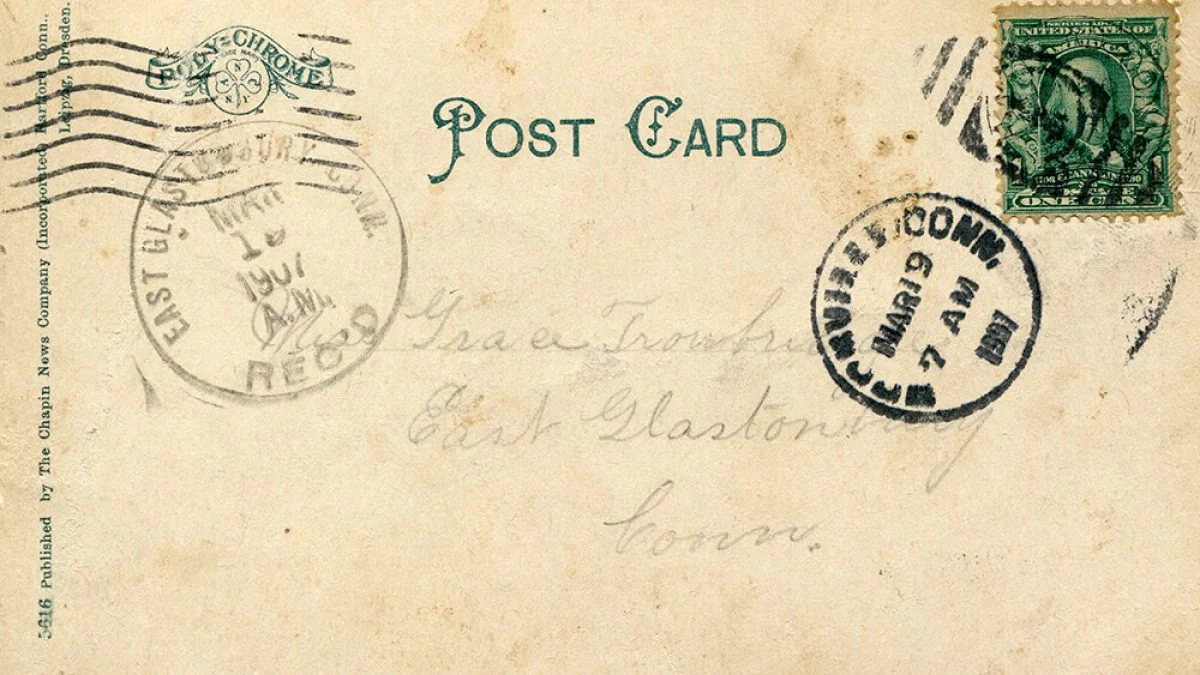 5616 Published by The Chapin News Company (Incorporated) Hartford Conn..
Leipzig, Dresden.
POLY-CHROME
TRADE MARK
POST CARD
EAST GLASTONBURY CONN.
MAR
1907
A.M.
REC'D
SERIES 1902
UNITED STATES OF
AMERICA
FRANKLIN
ONE CENT
CONN.
MAR 19
7 AM
1907
Miss Grace Trowbridge
East Glastonbury
Conn.